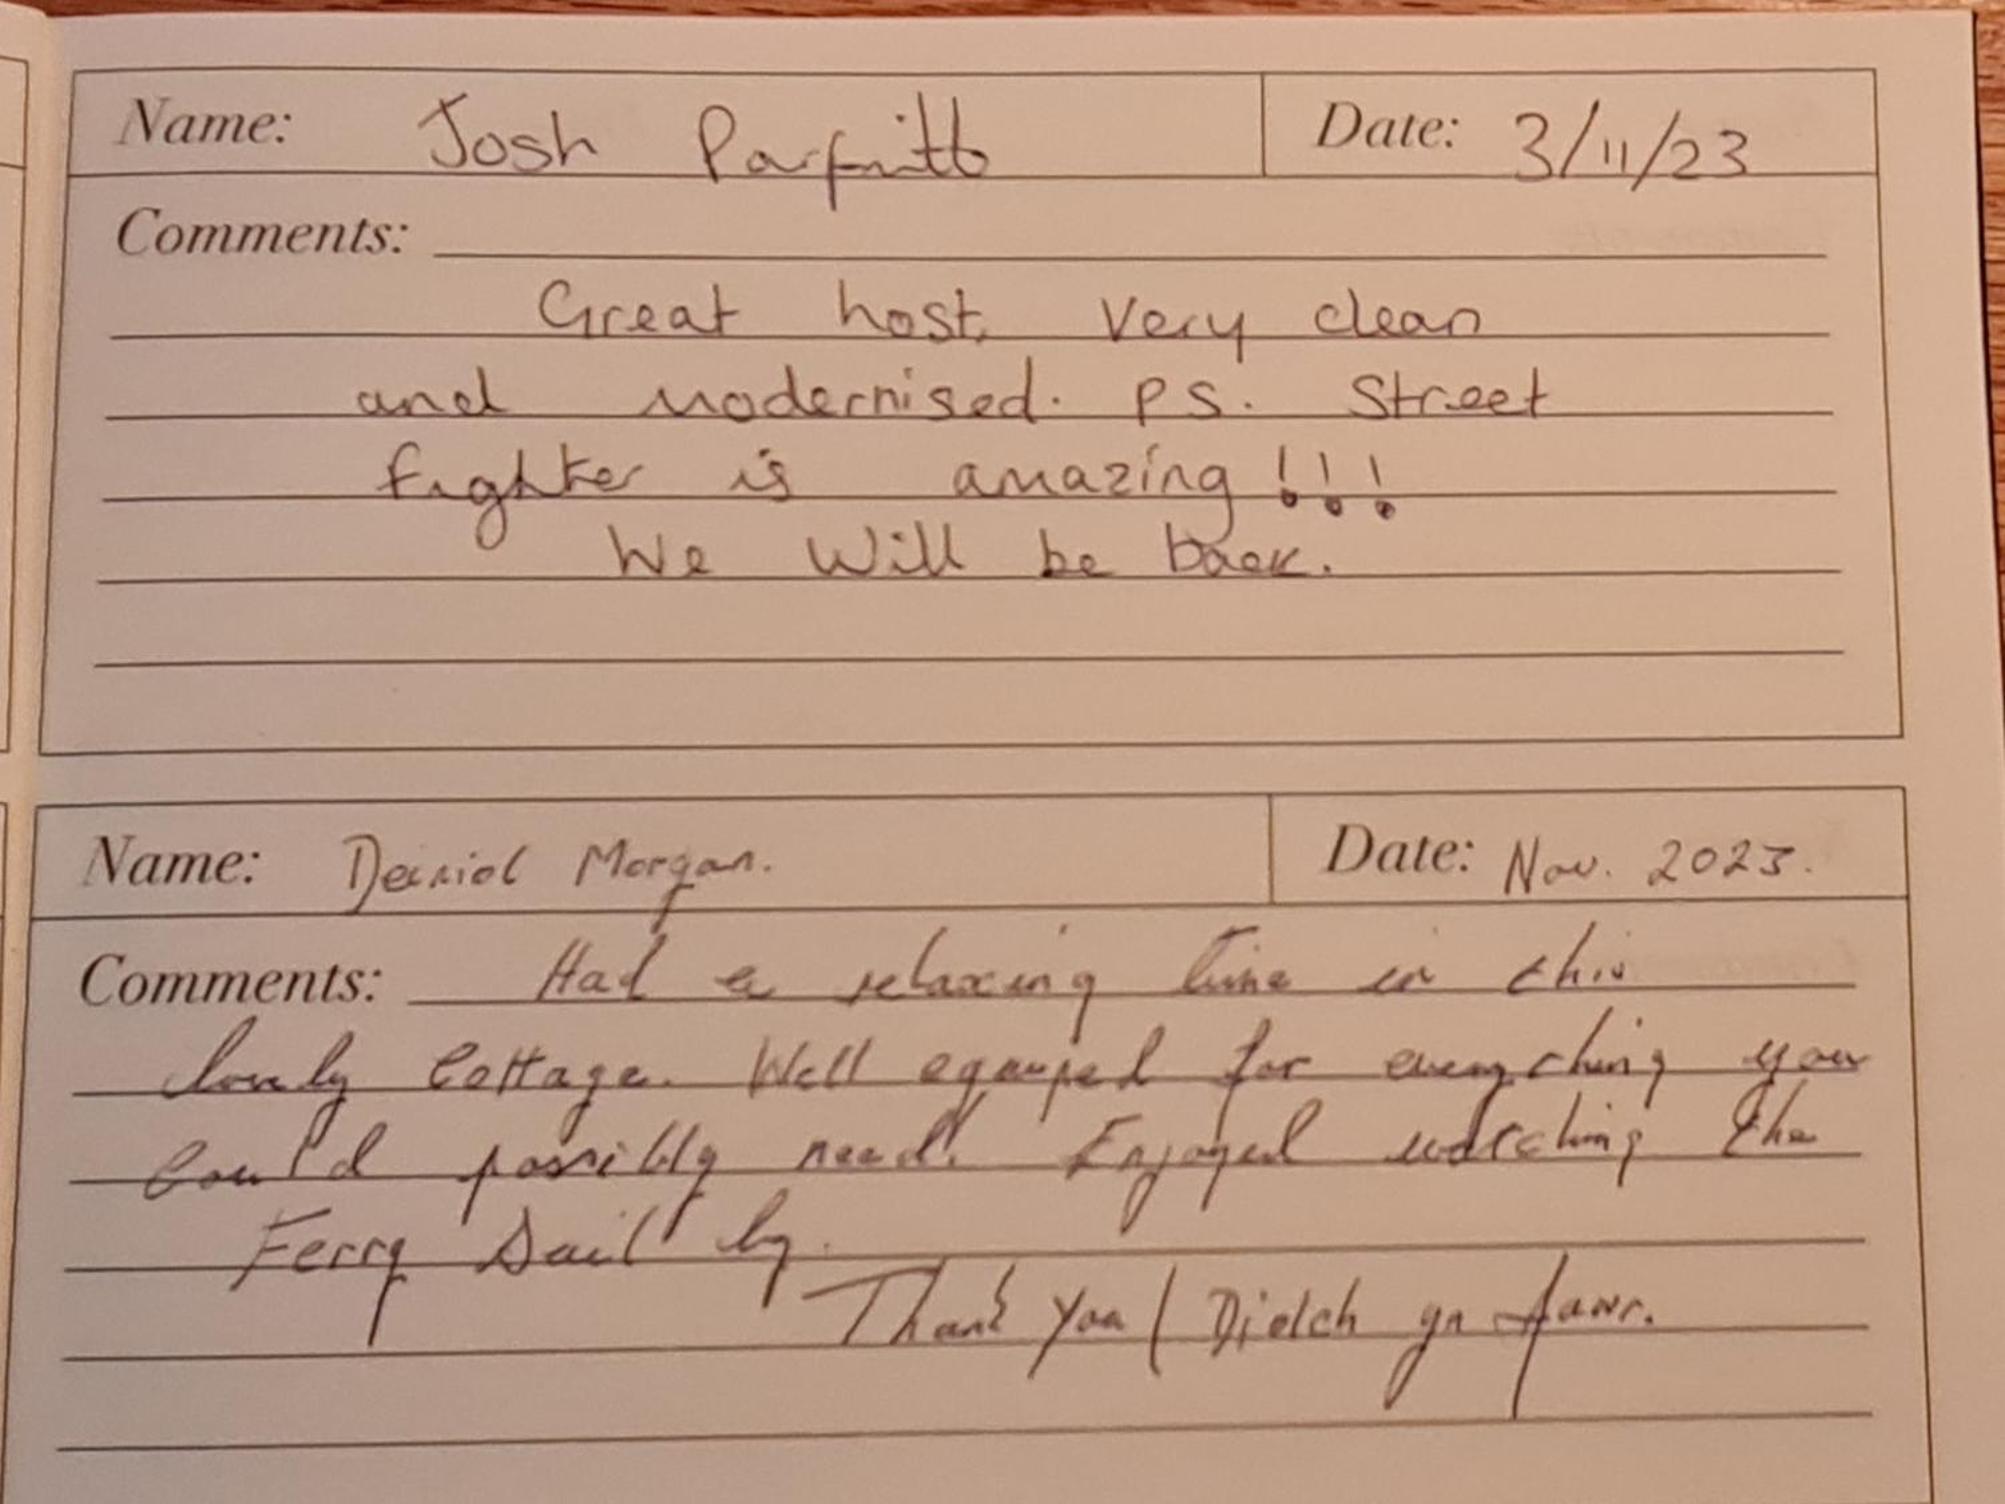 Name: Josh Parfitt Date: 3/11/23
Comments:
Great host, very clean
and modernised. PS. Street
fighter is amazing!!!
We will be back.
Name: Deiniol Morgan. Date: Nov. 2023.
Comments: Had a relaxing time in this
lovely Cottage. Well equiped for everything you
Could possibly need. Enjoyed watching the
Ferry Sail by.
Thank You / Diolch yn fawr.